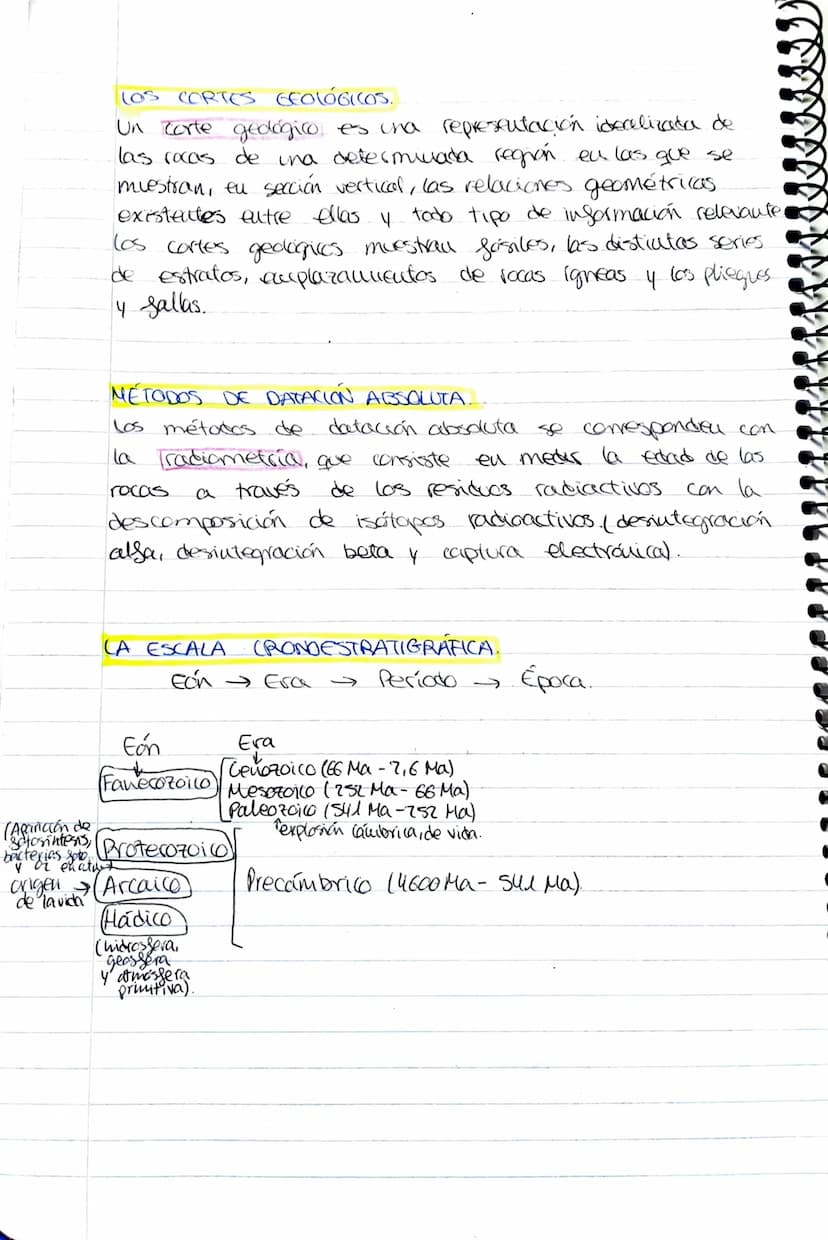 LOS CORTES GEOLÓGICOS.
Un corte geológico, es una representación idealizada de
las rocas de una determinada región en las que se
muestran, en sección vertical, las relaciones geométricas
existentes entre ellas y todo tipo de información relevante
Los cortes geológicos muestran fósiles, las distintas series
de estratos, emplazamientos de rocas ígneas y los pliegues
y fallas.
MÉTODOS DE DATACIÓN ABSOLUTA.
Los métodos de datación absoluta se corresponden con
la radiometría, que consiste en medir la edad de las
rocas a través de los residuos radiactivos con la
descomposición de isótopos radioactivos (desintegración
alfa, desintegración beta y captura electrónica).
LA ESCALA CRONOESTRATIGRÁFICA.
Eón → Era → Período → Época.
Eón Era
Fanerozoico
Cenozoico (66 Ma - 2,6 Ma)
Mesozoico (252 Ma - 66 Ma)
Paleozoico (541 Ma - 252 Ma)
↑explosión cámbrica, de vida.
(Aparición de
fotosíntesis,
bacterias foto
y O2 en
Proterozoico
origen → Arcaico
de la vida
Precámbrico (4600 Ma - 541 Ma)
Hádico
(hidrosfera,
geosfera
y atmósfera
primitiva).